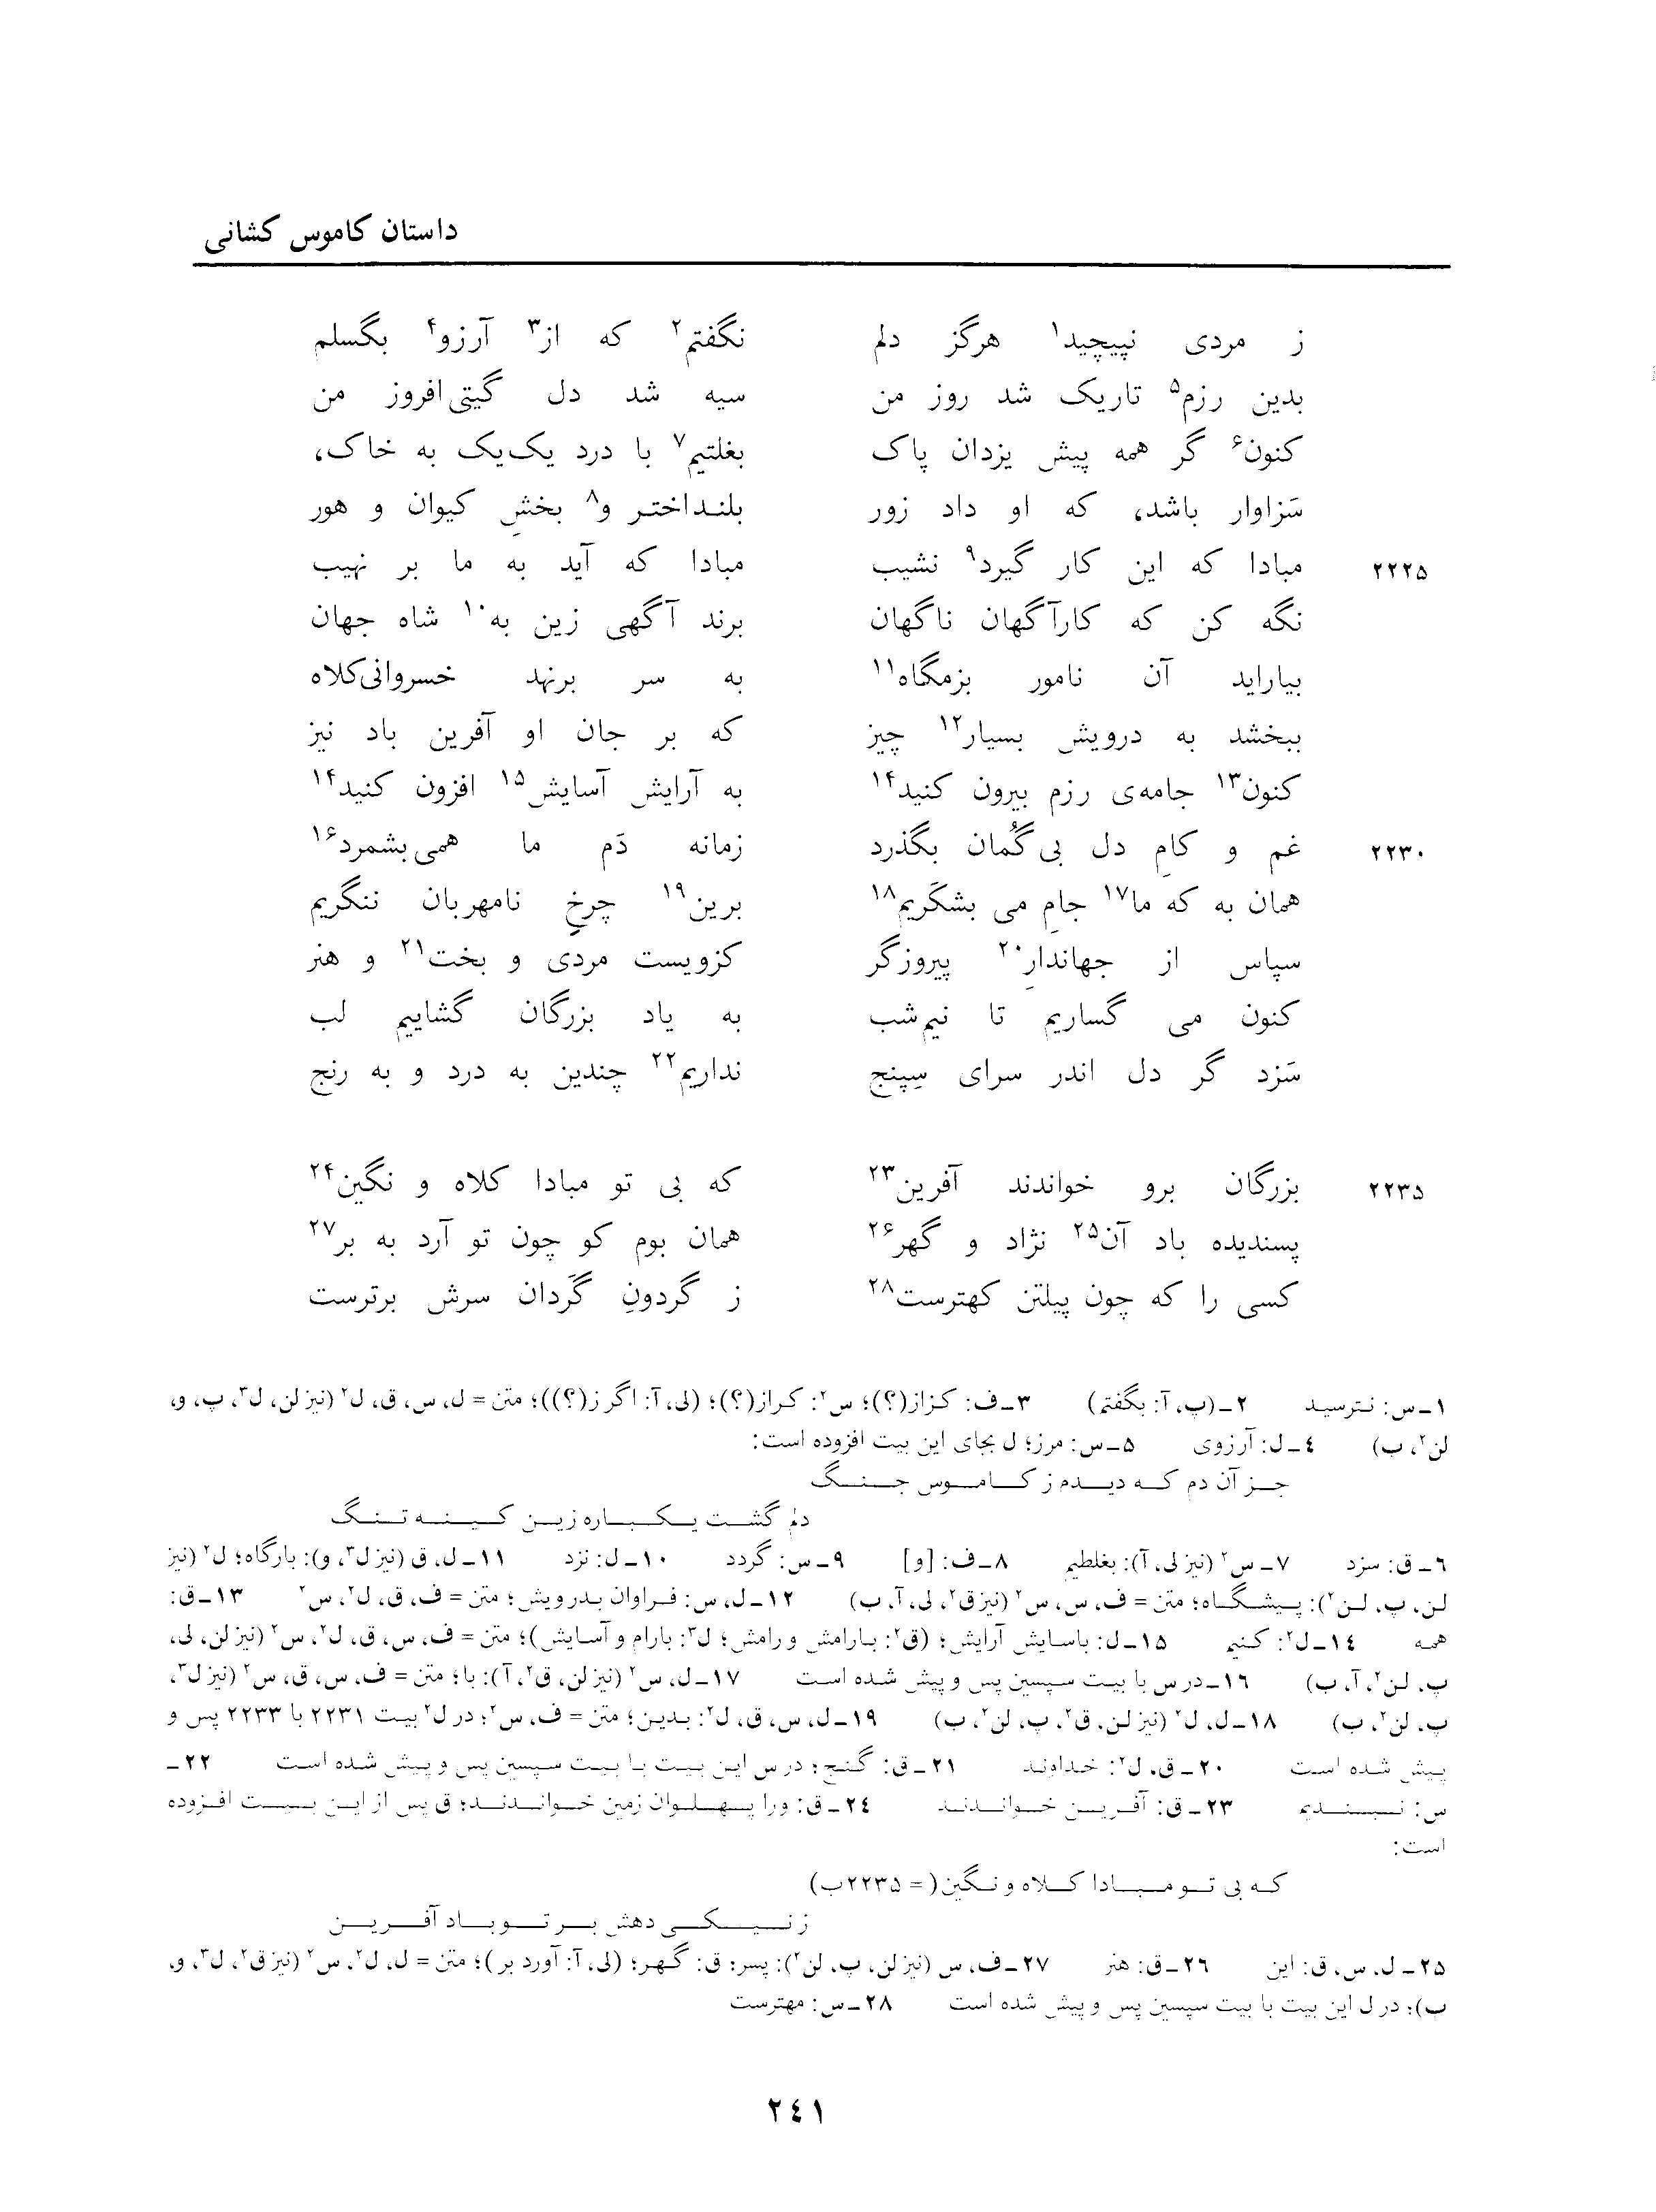 داستان کاموس کشانی
ز مردی نپیچید۱ هرگز دلم نگفتم۲ که از۳ آرزو۴ بگسلم
بدین رزم۵ تاریک شد روز من سیه شد دل گیتی‌افروز من
کنون۶ گر همه پیش یزدان پاک بغلتیم۷ با درد یک‌یک به خاک،
سَزاوار باشد، که او داد زور بلنداختر و۸ بخشِ کیوان و هور
۲۲۲۵ مبادا که این کار گیرد۹ نشیب مبادا که آید به ما بر نهیب
نگه کن که کارآگهان ناگهان برند آگهی زین به۱۰ شاه جهان
بیاراید آن نامور بزمگاه۱۱ به سر برنهد خسروانی‌کلاه
ببخشد به درویش بسیار۱۲ چیز که بر جان او آفرین باد نیز
کنون۱۳ جامه‌ی رزم بیرون کنید۱۴ به آرایش آسایش۱۵ افزون کنید۱۴
۲۲۳۰ غم و کامِ دل بی‌گُمان بگذرد زمانه دَم ما همی‌بشمرد۱۶
همان به که ما۱۷ جامِ می بشکَریم۱۸ برین۱۹ چرخِ نامهربان ننگریم
سپاس از جهاندارِ۲۰ پیروزگر کزویست مردی و بخت۲۱ و هنر
کنون می گساریم تا نیم‌شب به یاد بزرگان گشاییم لب
سَزد گر دل اندر سرای سِپنج نداریم۲۲ چندین به درد و به رنج
۲۲۳۵ بزرگان برو خواندند آفرین۲۳ که بی تو مبادا کلاه و نگین۲۴
پسندیده باد آن۲۵ نژاد و گهر۲۶ همان بوم کو چون تو آرد به بر۲۷
کسی را که چون پیلتن کهترست۲۸ ز گردونِ گَردان سرش برترست
۱ـ س: نترسید ۲ـ (پ، آ: بگفتم) ۳ـ ف: کزاز(؟)؛ س۲: کراز(؟)؛ (لی، آ: اگر ز(؟))؛ متن = ل، س، ق، ل۲ (نیز لن، ل۳، پ، و،
لن۲، ب) ۴ـ ل: آرزوی ۵ـ س: مرز؛ ل بجای این بیت افزوده است:
جز آن دم که دیدم ز کاموس جنگ
دلم گشت یکباره زین کینه تنگ
۶ـ ق: سزد ۷ـ س۲ (نیز لی، آ): بغلطیم ۸ـ ف: [و] ۹ـ س: گردد ۱۰ـ ل: نزد ۱۱ـ ل، ق (نیز ل۳، و): بارگاه؛ ل۲ (نیز
لن، پ، لن۲): پیشگاه؛ متن = ف، س، س۲ (نیز ق۲، لی، آ، ب) ۱۲ـ ل، س: فراوان بدرویش؛ متن = ف، ق، ل۲، س۲ ۱۳ـ ق:
همه ۱۴ـ ل۲: کنیم ۱۵ـ ل: باسایش آرایش؛ (ق۲: بارامش و رامش؛ ل۳: بارام و آسایش)؛ متن = ف، س، ق، ل۲، س۲ (نیز لن، لی،
پ، لن۲، آ، ب) ۱۶ـ در س با بیت سپسین پس و پیش شده است ۱۷ـ ل، س۲ (نیز لن، ق۲، آ): با؛ متن = ف، س، ق، س۲ (نیز ل۳،
پ، لن۲، ب) ۱۸ـ ل، ل۲ (نیز لن، ق۲، پ، لن۲، ب) ۱۹ـ ل، س، ق، ل۲: بدین؛ متن = ف، س۲؛ در ل۲ بیت ۲۲۳۱ با ۲۲۳۳ پس و
پیش شده است ۲۰ـ ق، ل۲: خداوند ۲۱ـ ق: گنج؛ در س این بیت با بیت سپسین پس و پیش شده است ۲۲ـ
س: نبندیم ۲۳ـ ق: آفرین خواندند ۲۴ـ ق: ورا پهلوان زمین خواندند؛ ق پس از این بیت افزوده
است:
که بی تو مبادا کلاه و نگین (= ۲۲۳۵ب)
ز نیکی دهش بر تو باد آفرین
۲۵ـ ل، س، ق: این ۲۶ـ ق: هنر ۲۷ـ ف، س (نیز لن، پ، لن۲): پسر؛ ق: گهر؛ (لی، آ: آورد بر)؛ متن = ل، ل۲، س۲ (نیز ق۲، ل۳، و،
ب)؛ در ل این بیت با بیت سپسین پس و پیش شده است ۲۸ـ س: مهترست
۲۴۱